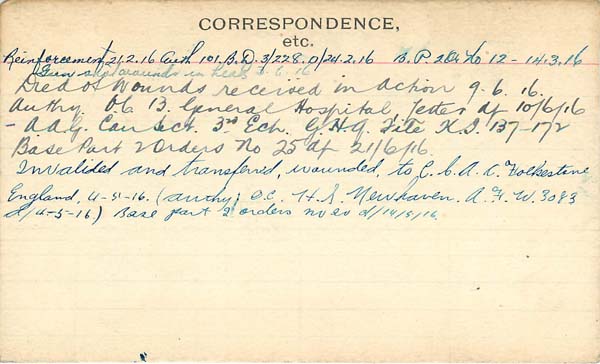 CORRESPONDENCE,
etc.
Reinforcement 21.2.16 Auth 101. B.D. 3/228.D/24.2.16 B.P. 2 No 12 - 14.3.16
Gun shot wounds in Head 6.16
Died of Wounds received in Action 9.6.16.
Authy. O/c 13. General Hospital letter df 10/6/16
- A.A.G. Can Sect. 3rd Ech. G.H.Q. File K.D. 137-172
Base Part 2 Orders No 25 df 21/6/16.
Invalided and transferred, wounded, to C.C.A.C. Folkestone
England, 4-5-16. (authy; O.C. H.S. Newhaven. A.F.W. 3083
d/4-5-16) Base part 2 orders no 20 d/14/5/16.